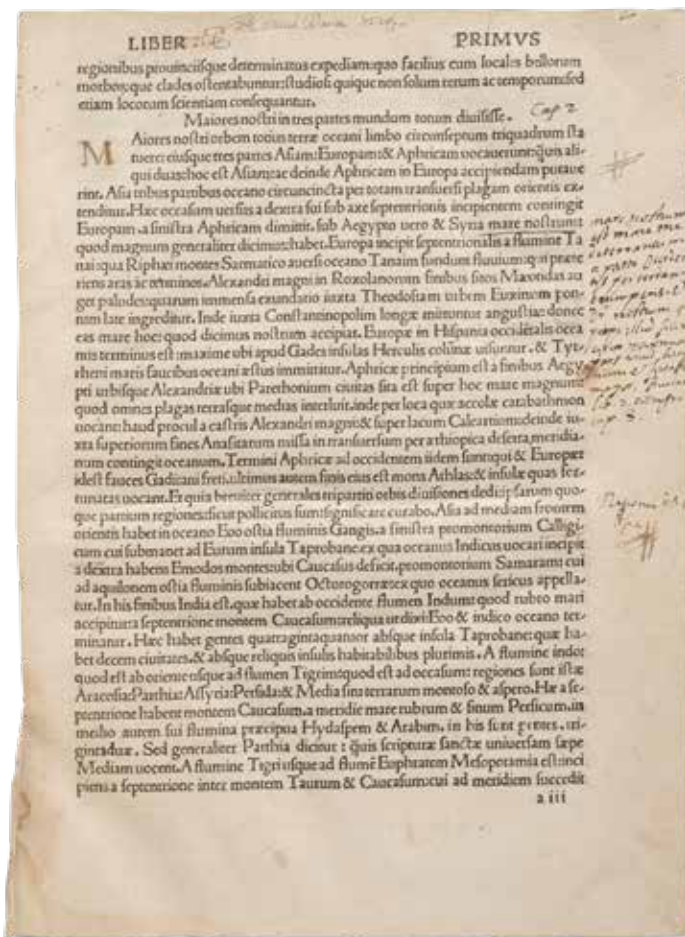 LIBER
PRIMVS
regionibus prouinciisque determinatus expediam:quo facilius cum locales bellorum
morbor;que clades ostentabuntur:studiosi quique non solum rerum ac temporum:sed
etiam locorum scientiam consequantur.
Maiores nostri in tres partes mundum totum diuisisse. Cap 2
MAiores nostri orbem totius terræ oceani limbo circunseptum triquadrum sta
tuere: eiusque tres partes Asiam:Europam:& Aphricam uocauerunt:quis ali-
qui duas:hoc est Asiam:ac deinde Aphricam in Europa accipiendam putaue
rint. Asia tribus partibus oceano circuncincta per totam transuersi plagam orientis ex-
tenditur. Hæc occasum uersus a dextra sui sub axe septentrionis incipientem contingit
Europam.a sinistra Aphricam dimittit. sub Aegypto uero & Syria mare nostrum
quod magnum generaliter dicimus:habet. Europa incipit septentrionalis a flumine Ta
nai:qua Riphæi montes Sarmatico auersi oceano Tanaim fundunt fluuium:qui præte
riens aras ac terminos. Alexandri magni in Roxolanorum finibus sitos Mæotidas au
get paludes:quarum immensa exundatio iuxta Theodosiam urbem Euxinum pon-
tum late ingreditur. Inde iuxta Constantinopolim longæ mittuntur angustiæ: donec
eas mare hoc: quod dicimus nostrum accipiat. Europæ in Hispania occidētalis ocea
mis terminus est:maxime ubi apud Gades insulas Herculis colūnæ uisuntur. & Tyr-
rheni maris faucibus oceani æstus immittitur. Aphricæ principium est a finibus Aegy
pti urbisque Alexandriæ ubi Parethonium ciuitas sita est super hoc mare magnum:
quod omnes plagas terrasque medias interluit.inde per loca quæ accolæ catabathmon
uocant:haud procul a castris Alexandri magni:& super lacum Calearsum:deinde iu-
xta superiorum fines Auasitarum missa in transuersum per æthiopica deserta,meridia-
num contingit oceanum. Termini Aphricæ ad occidentem iidem sunt:qui & Europæ:
idest fauces Gaditani freti.ultimus autem finis eius est mons Athlas:& insulæ quas for-
tunatas uocant. Et quia breuiter generales tripartiti orbis diuisiones dedi:ipsarum quo-
que partium regiones:sicut pollicitus sum:significare curabo. Asia ad mediam frontem
orientis habet in oceano Eoo ostia fluminis Gangis.a sinistra promontorium Calligi
cum cui submanet ad Eurum insula Taprobane.ex qua oceanus Indicus uocari incipit
a dextra habens Emodos montes:ubi Caucasus deficit.promontorium Samaram: cui
ad aquilonem ostia fluminis subiacent Octorogorræ:ex quo oceanus sericus appella-
tur. In his finibus India est.quæ habet ab occidente flumen Indum:quod rubro mari
accipitur:a septentrione montem Caucasum:reliqua ut dixi:Eoo & indico oceano ter-
minatur. Hæc habet gentes quatragintaquattuor absque insula Taprobane:quæ ha-
bet decem ciuitates.& absque reliquis insulis habitabilibus plurimis. A flumine indo:
quod est ab oriente usque ad flumen Tigrim:quod est ad occasum: regiones sunt istæ
Aracosia:Parthia:Assyria:Persida:& Media sitæ terrarum montoso & aspero. Hæ a se-
ptentrione habent montem Caucasum.a meridie mare rubrum & sinum Persicum.in
medio autem sui flumina præcipua Hydaspem & Arabim. in his sunt gentes. tri-
gintaduæ. Sed generaliter Parthia dicitur : quis scripturæ sanctæ uniuersam sæpe
Mediam uocent. A flumine Tigri usque ad flumē Euphratem Mesopotamia est:inci
piens a septentrione inter montem Taurum & Caucasum:cui ad meridiem succedit
a iii
mare nostrum